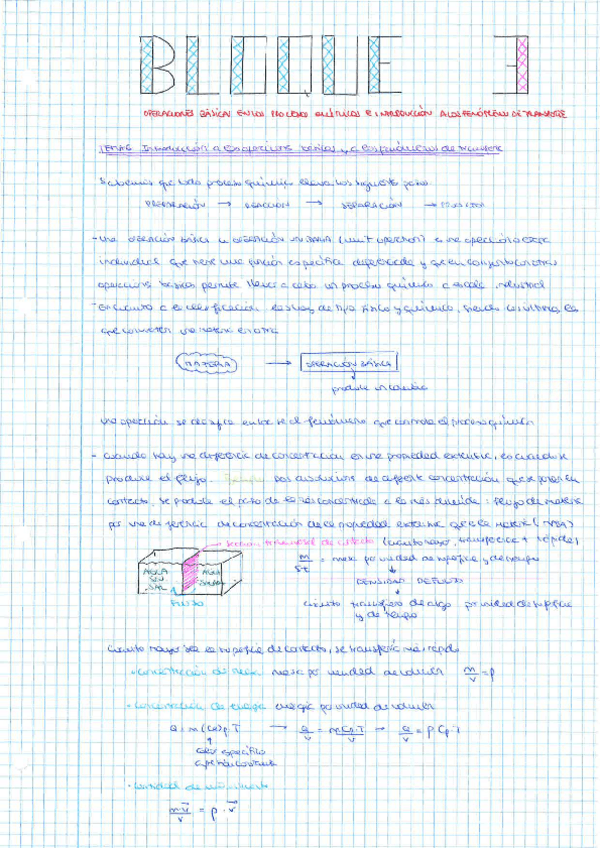 BLOQUE 3
OPERACIONES BÁSICAS EN LOS PROCESOS QUÍMICOS E INTRODUCCIÓN A LOS FENÓMENOS DE TRANSPORTE
TEMA 6 Introducción a las operaciones básicas y a los fenómenos de transporte
que todo proceso químico lleva los siguientes pasos
PREPARACIÓN → REACCIÓN → SEPARACIÓN →
- Una OPERACIÓN BÁSICA u OPERACIÓN UNITARIA (unit operation) es una operación
individual que tiene una función específica diferenciada y que en conjunto con otras
operaciones básicas permite llevar a cabo un proceso químico a escala industrial
- En cuanto a la clasificación las hay de tipo físico y químico, siendo las últimas las
que convierten una materia en otra
MATERIA → OPERACIÓN BÁSICA
produce un cambio
Una operación se clasifica el fenómeno que controla el proceso químico
- Cuando hay una diferencia de concentración en una propiedad extensiva, es cuando se
produce el flujo. Ejemplo dos disoluciones de diferente concentración que se ponen en
contacto, se produce el paso de la más concentrada a la más diluida: flujo de materia
por una diferencia de concentración de la propiedad extensiva que es la materia (masa)
sección transversal de contacto (cuanto mayor, transferencia + rápida)
AGUA SIN SAL
AGUA SALADA
FLUJO
m/S·t = masa por unidad de superficie y de tiempo
DENSIDAD DE FLUJO
cuánto transfiero de algo por unidad de superficie
y de tiempo
Cuanto mayor sea la superficie de contacto, se transferirá más rápido
· Concentración de masa masa por unidad de volumen m/v = ρ
· Concentración de energía energía por unidad de volumen
Q = m(Ce)p T → Q/v = m Cp·T/v → Q/v = ρ Cp·T
calor específico
a presión constante
· Cantidad de movimiento
m·v/v = ρ · v